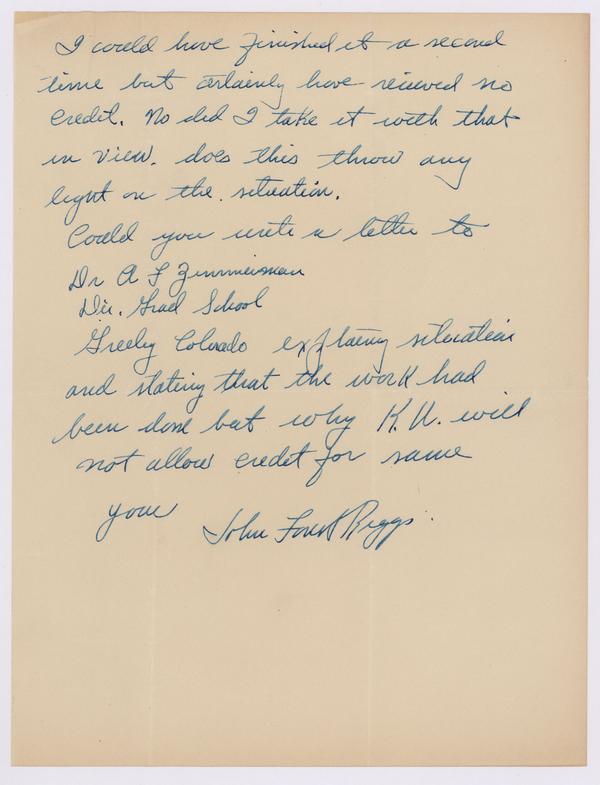 I could have finished it a second
time but certainly have received no
credit. No did I take it with that
in view. does this throw any
light on the situation.
Could you write a letter to
Dr A F Zimmerman
Dir. Grad School
Greeley Colorado explaing situation
and stating that the work had
been done but why K.U. will
not allow credit for same
your
John Riggs